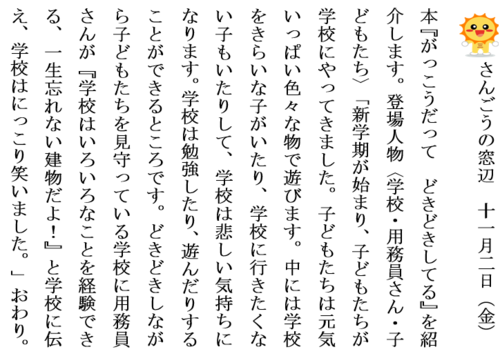 さんごうの窓辺　十一月二日（金）
本『がっこうだって　どきどきしてる』を紹
介します。登場人物〈学校・用務員さん・子
どもたち〉「新学期が始まり、子どもたちが
学校にやってきました。子どもたちは元気
いっぱい色々な物で遊びます。中には学校
をきらいな子がいたり、学校に行きたくな
い子もいたりして、学校は悲しい気持ちに
なります。学校は勉強したり、遊んだりする
ことができるところです。どきどきしなが
ら子どもたちを見守っている学校に用務員
さんが『学校はいろいろなことを経験でき
る、一生忘れない建物だよ！』と学校に伝
え、学校はにっこり笑いました。」おわり。